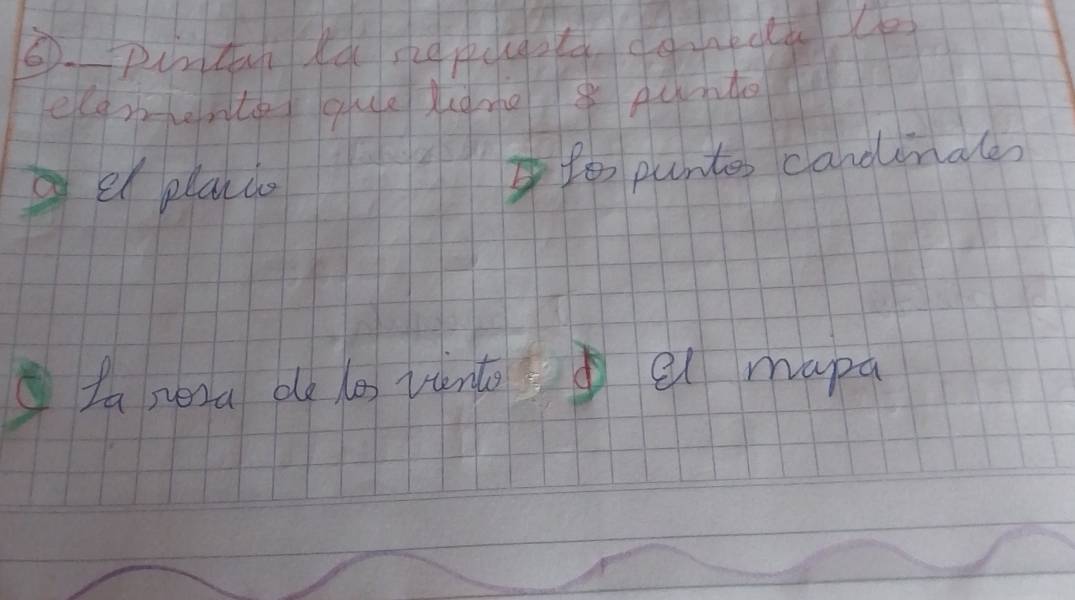 6).- Pintar la repuesta correcta los
elementos que tiene 8 punto
a) El placio b) Los puntos cardinales
c) La rosa de los viento d) El mapa